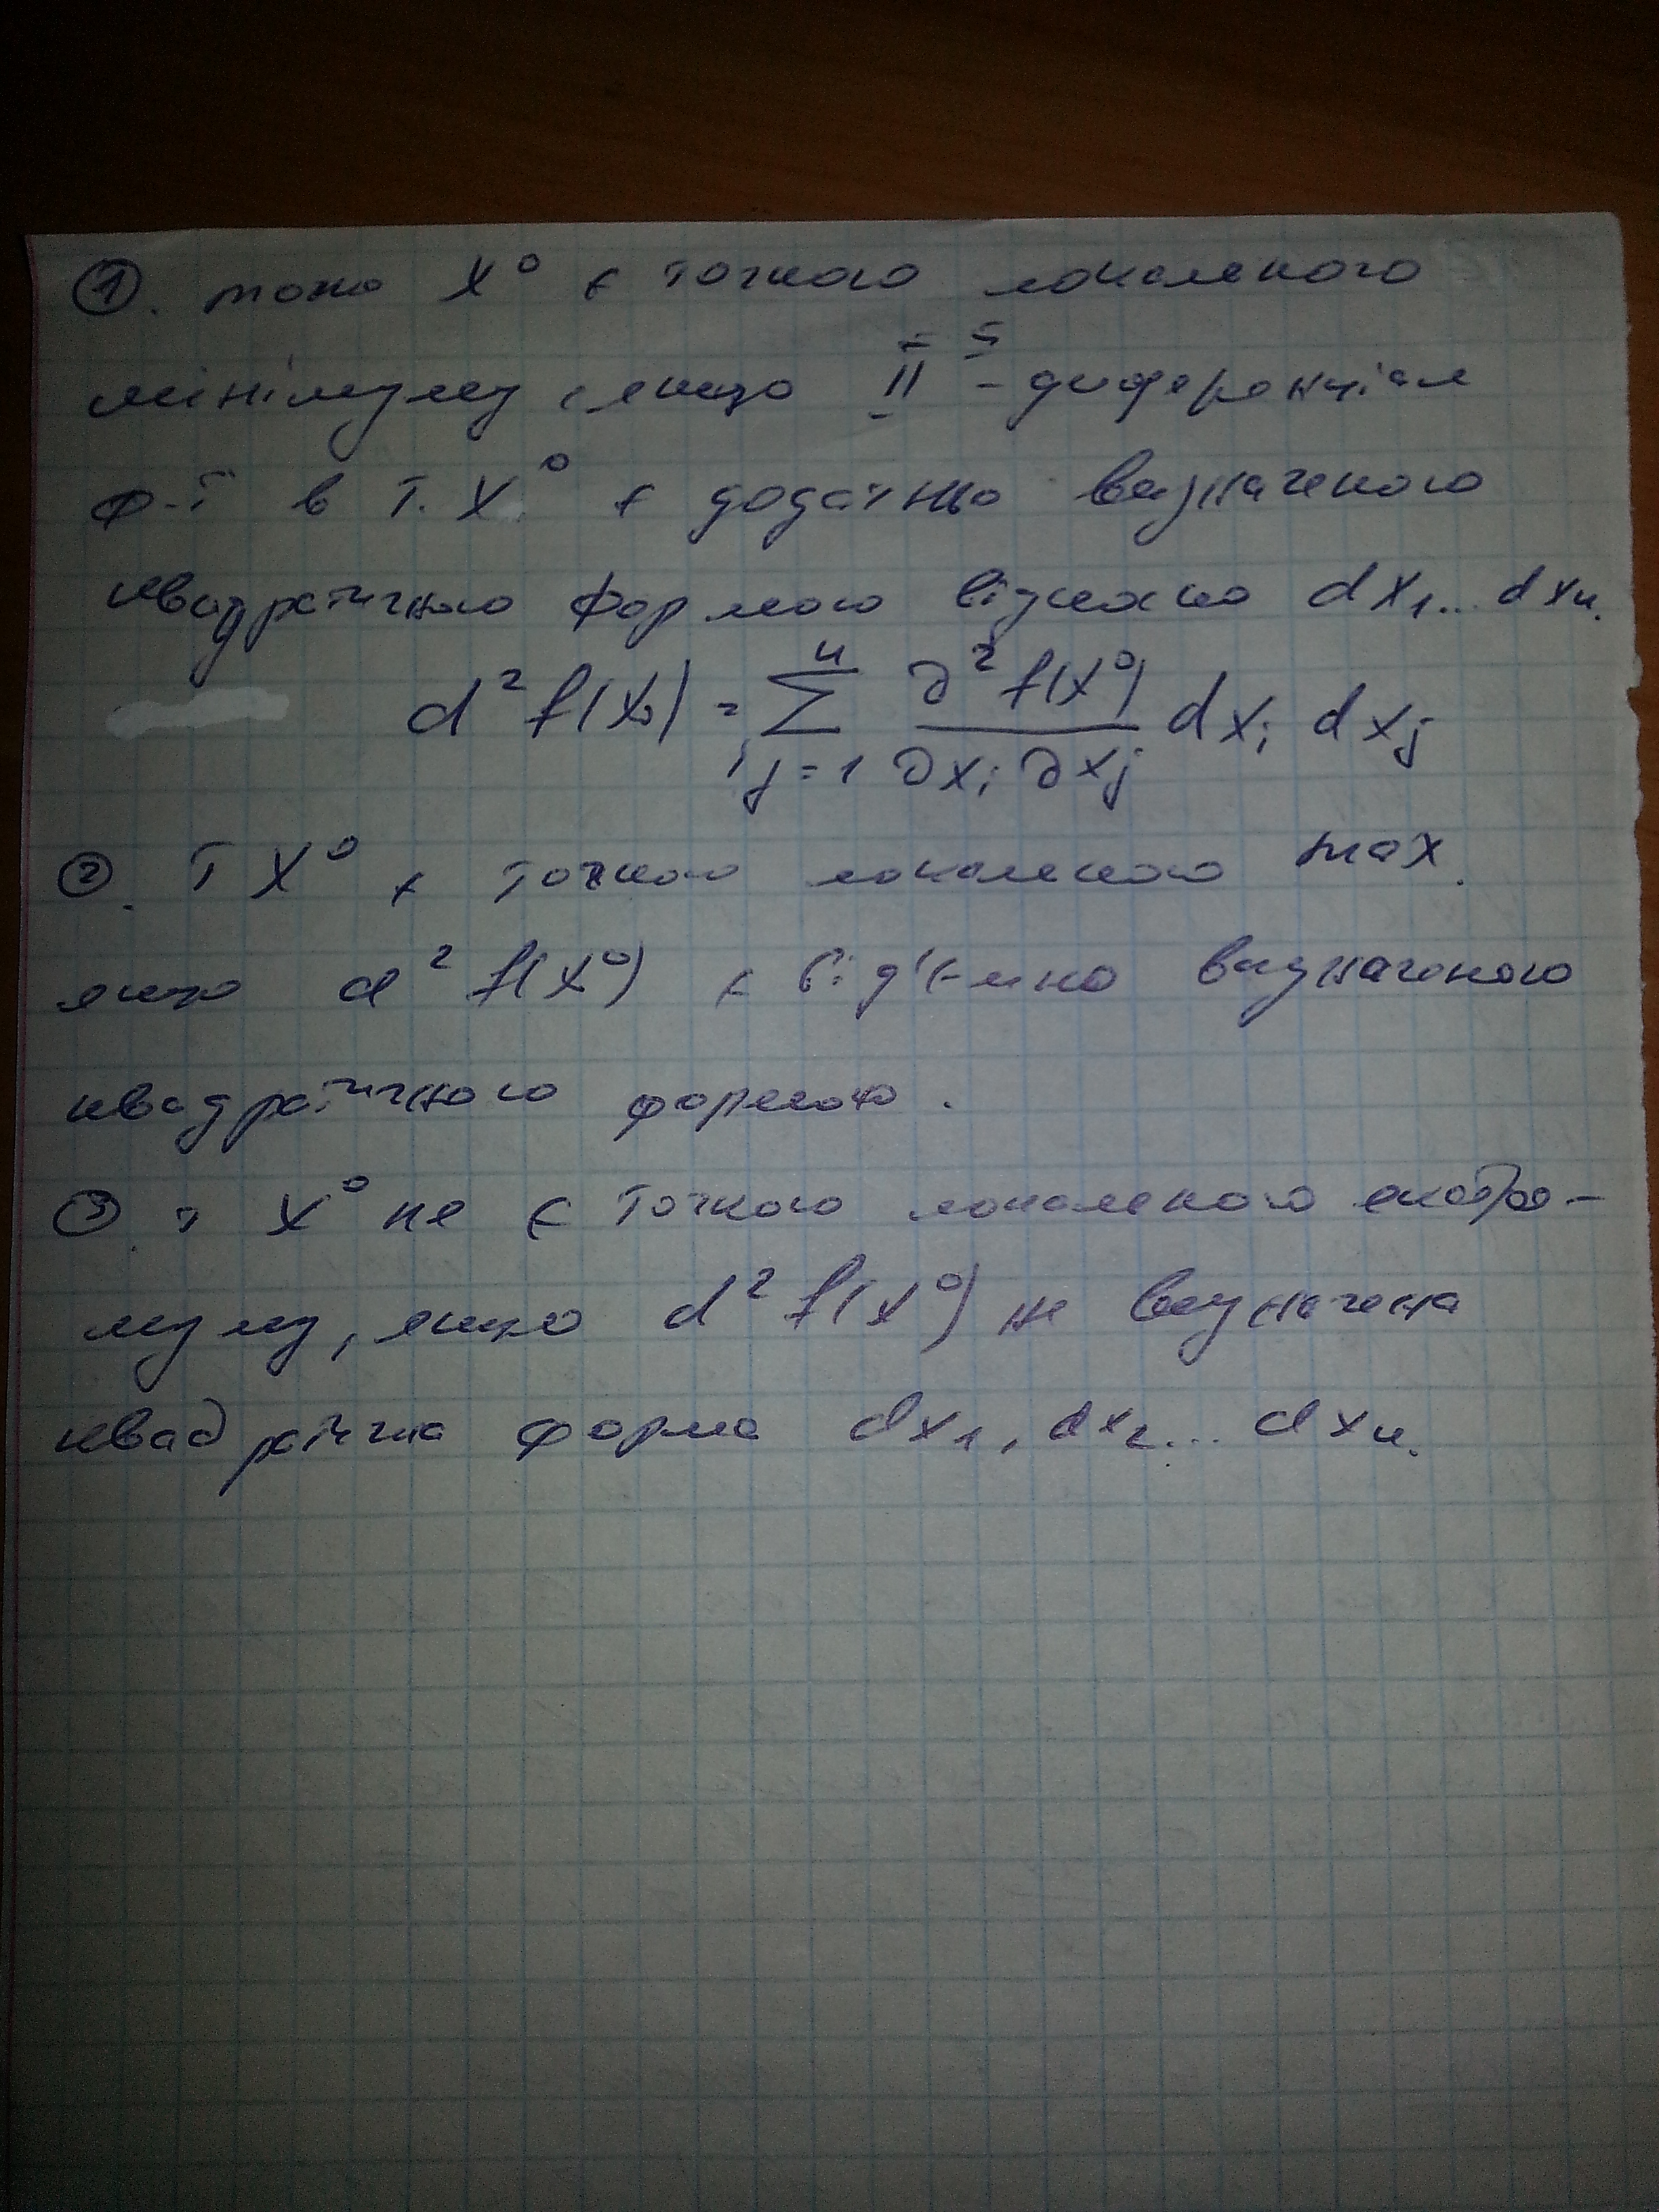 ①. тоно X⁰ є точкою локального
мінімуму, якщо II й - диференціал
ф-ї в т. X⁰ є додатньо визначеною
квадратичною формою відносно dx₁... dxₙ.
d²f(x₀) = Σⁿᵢⱼ₌₁ ∂²f(x⁰)/∂xᵢ ∂xⱼ dxᵢ dxⱼ
②. т X⁰ є точкою локального max.
якщо d² f(x⁰) є від'ємно визначеною
квадратичною формою.
③. т X⁰ не є точкою локального екстре-
муму, якщо d² f(x⁰) не визначена
квадратична форма dx₁, dx₂... dxₙ.